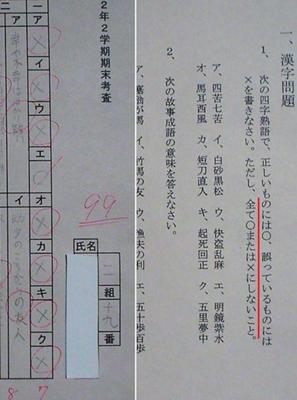 一、漢字問題
1、次の四字熟語で、正しいものには○、誤っているものには
×を書きなさい。ただし、全て○または×にしないこと。
ア、四苦七苦　イ、白砂黒松　ウ、快盗乱麻　エ、明鏡紫水
オ、馬耳西風　カ、短刀直入　キ、起死回正　ク、五里夢中
2、次の故事成語の意味を答えなさい。
ア、塞翁が馬　イ、竹馬の友　ウ、漁夫の利　エ、五十歩百歩
2年2学期期末考査
99
氏名
二組十九番
一 ア × イ × ウ × エ ○ オ × カ × キ × ク × 7
二 ア イ のころ の友人 8